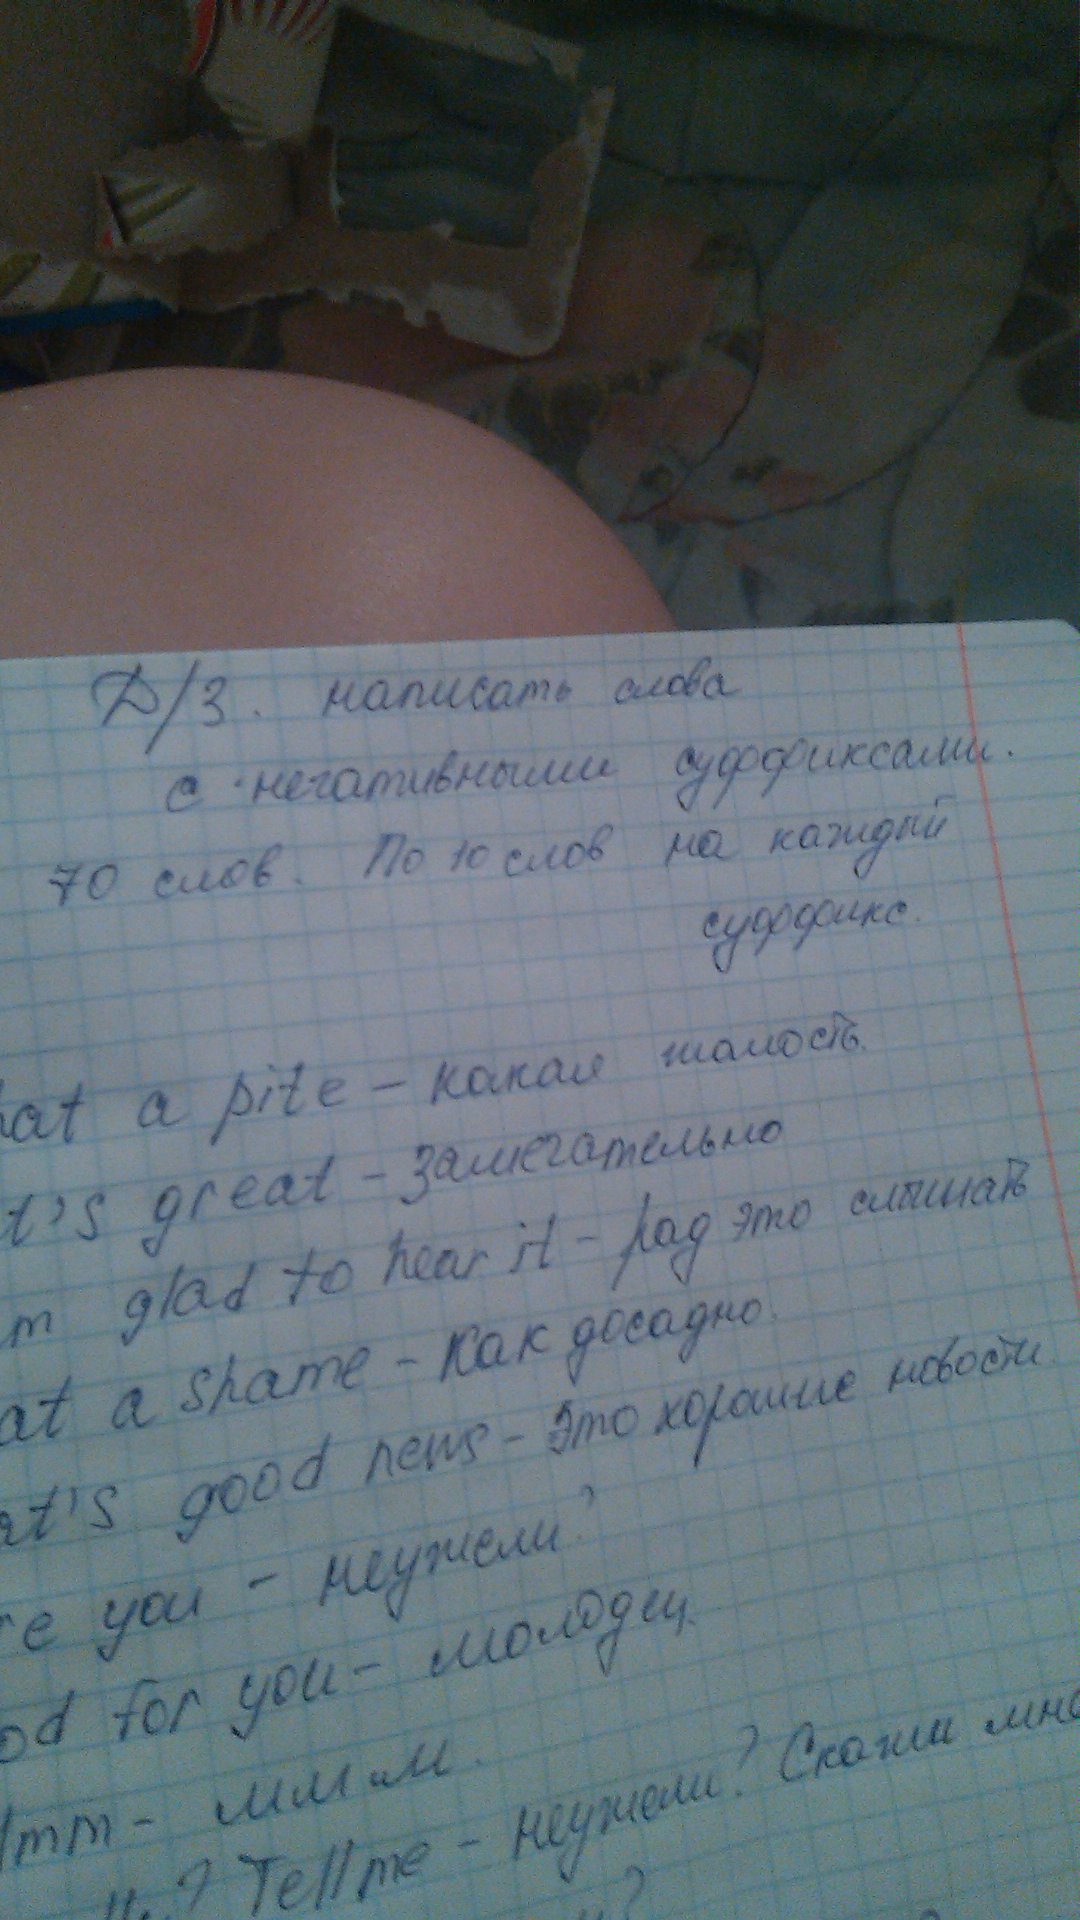 Д/З. написать слова
с негативными суффиксами.
70 слов. По 10 слов на каждый
суффикс.
hat a pite – какая жалость.
t's great – замечательно
m glad to hear it – рад это слышать
at a shame – как досадно.
at's good news – Это хорошие новости.
re you – неужели?
od for you – молодец.
mm – мм м.
? Tell me – неужели? Скажи мне